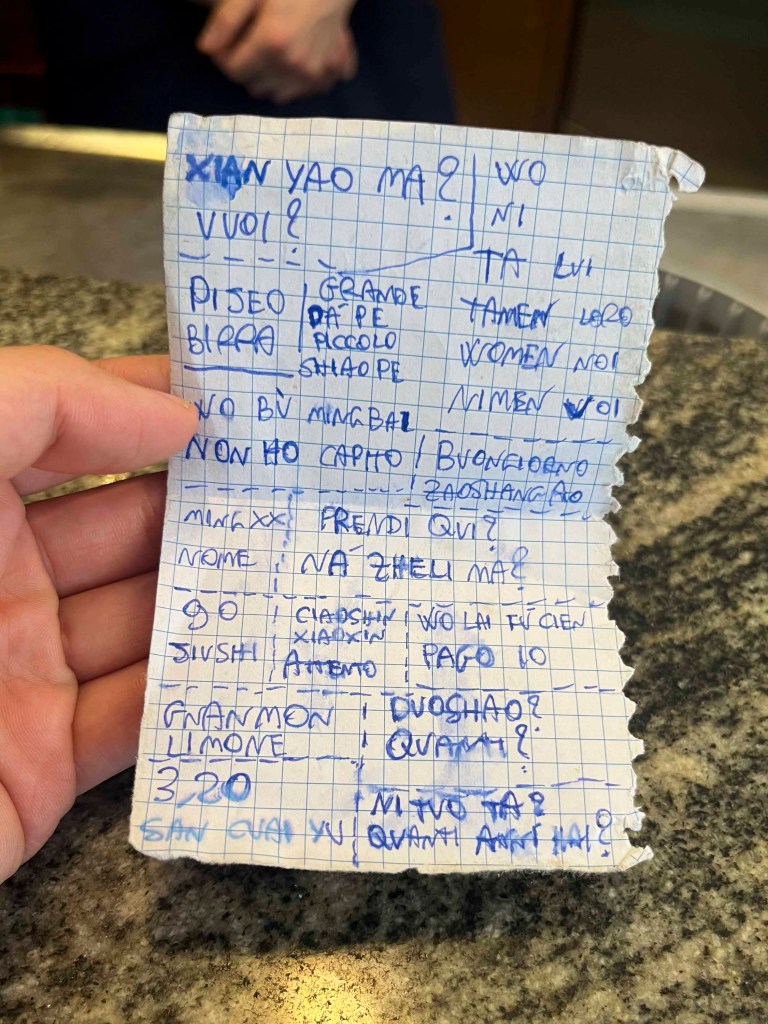 XIAN YAO MA?
VUOI?
WO
NI
TA LUI
TAMEN LORO
WOMEN NOI
NIMEN VOI
PIJEO
BIRRA
GRANDE
DÁ PE
PICCOLO
SHIAO PE
WO BÙ MINGBAI
NON HO CAPITO
BUONGIORNO
ZAOSHANGAO
MINGXX
NOME
PRENDI QUI?
NÁ ZHELI MA?
90
JIUSHI
CIAOSHIN
XIAOXIN
ATTENTO
WŎ LAI FÙ CIEN
PAGO IO
GNANMON
LIMONE
DUOSHAO?
QUANTI?
3,20
SAN CUAI YU
NI TUO TA?
QUANTI ANNI HAI?